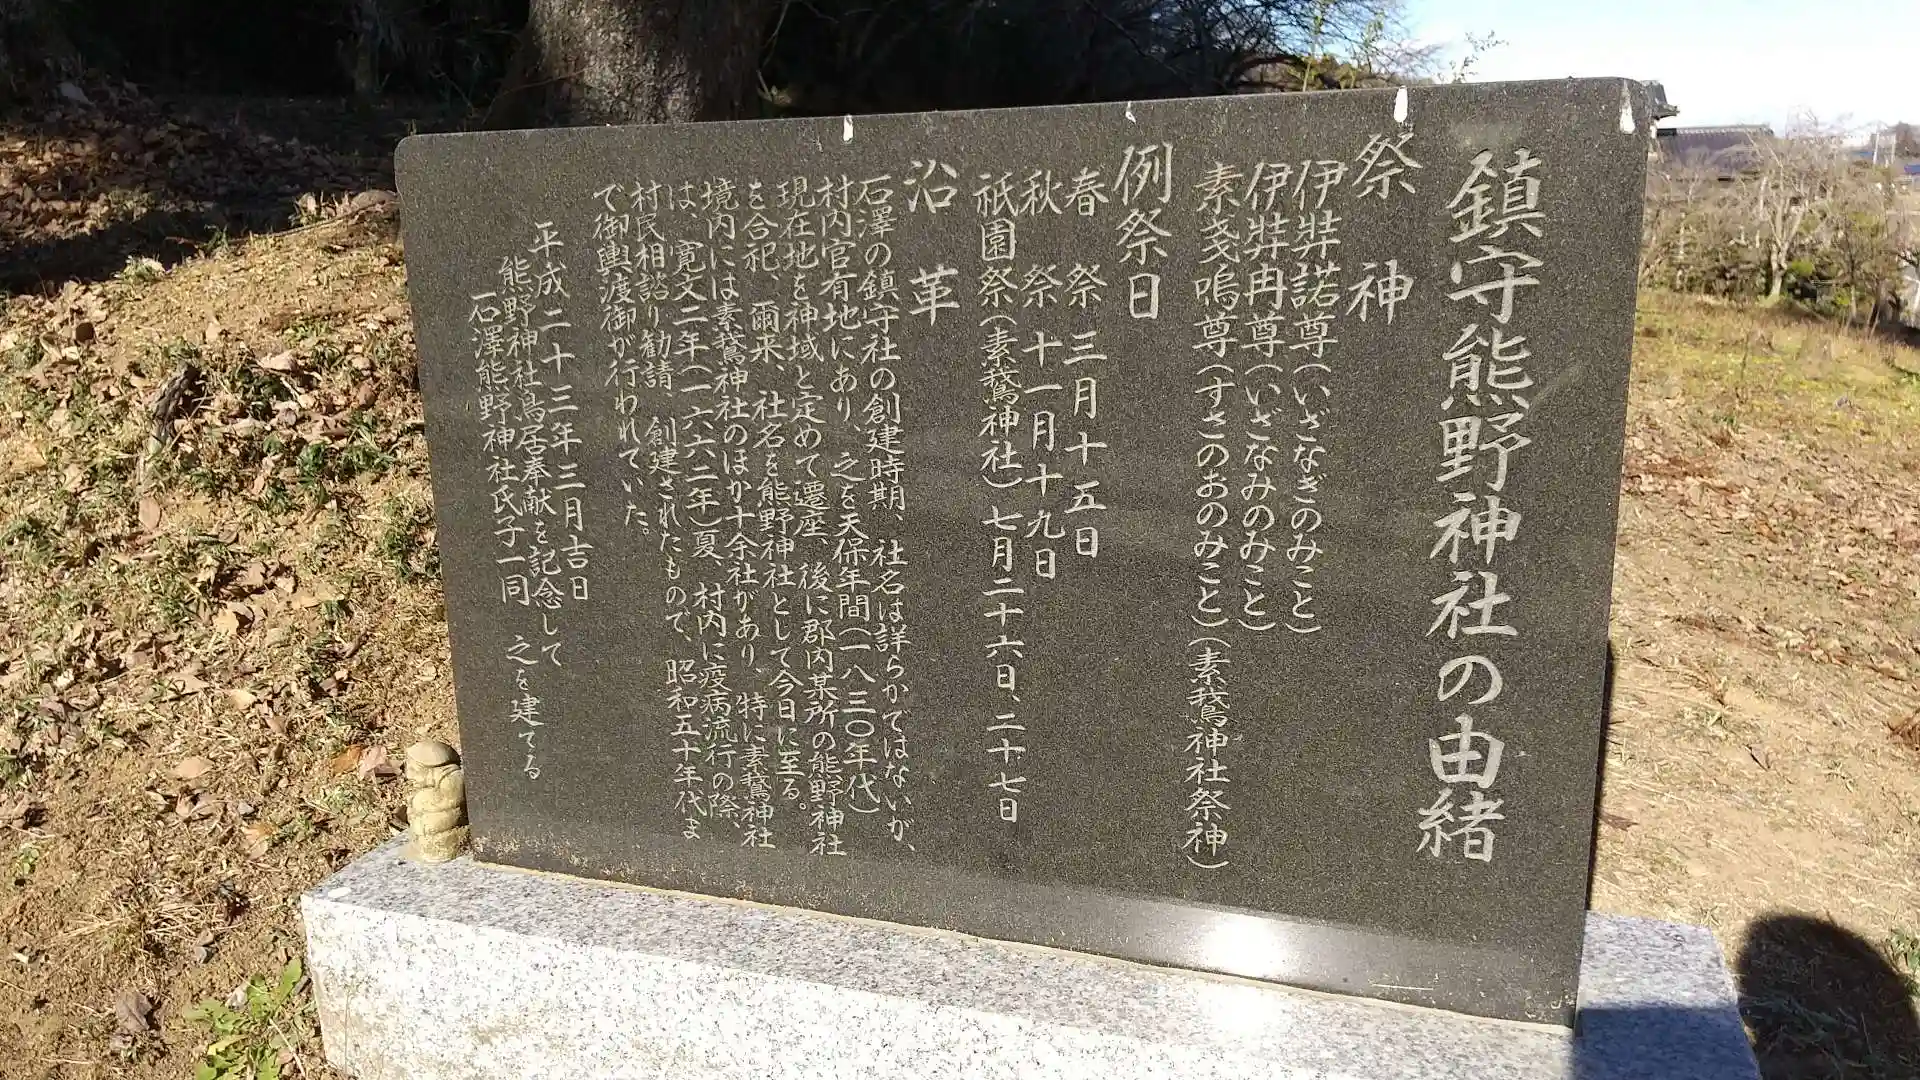 鎮守熊野神社の由緒
祭神
伊弉諾尊(いざなぎのみこと)
伊弉冉尊(いざなみのみこと)
素戔嗚尊(すさのおのみこと)(素鵞神社祭神)
例祭日
春祭 三月十五日
秋祭 十一月十九日
祇園祭(素鵞神社)七月二十六日、二十七日
沿革
石澤の鎮守社の創建時期、社名は詳らかではないが、
村内官有地にあり、之を天保年間(一八三〇年代)
現在地を神域と定めて遷座、後に郡内某所の熊野神社
を合祀、爾来、社名を熊野神社として今日に至る。
境内には素鵞神社のほか十余社があり、特に素鵞神社
は、寛文二年(一六六二年)夏、村内に疫病流行の際、
村民相諮り勧請、創建されたもので、昭和五十年代ま
で御輿渡御が行われていた。
平成二十三年三月吉日
熊野神社鳥居奉献を記念して
石澤熊野神社氏子一同 之を建てる